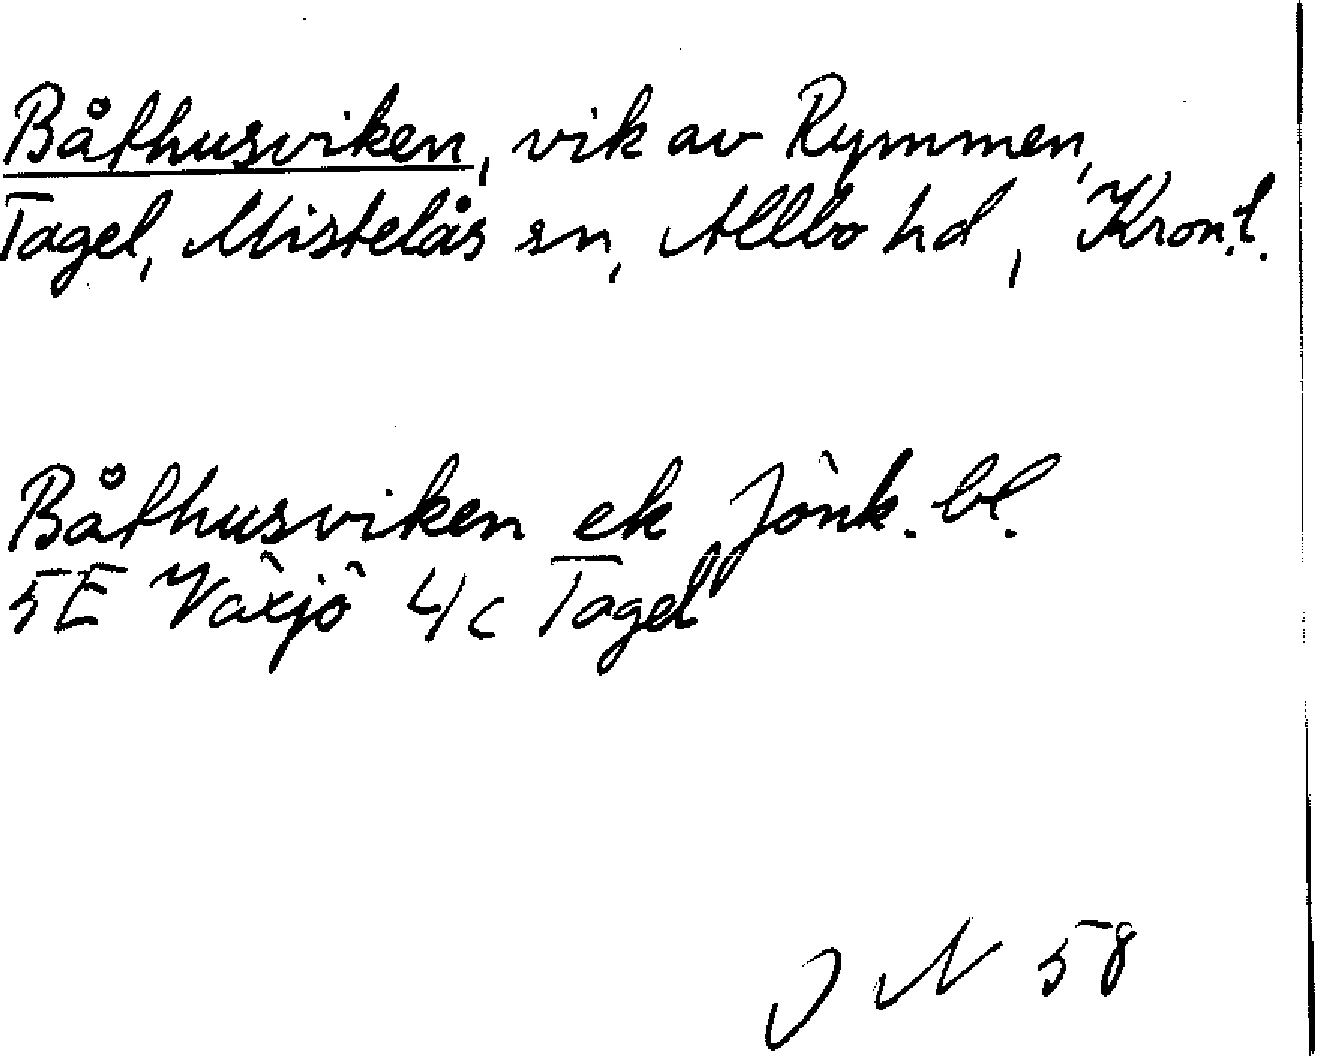 Båthusviken, vik av Rymmen,
Tagel, Mistelås sn, Allbo hd, Kron.l.
Båthusviken ek Jönk. bl.
5E Växjö 4c Tagel
J N 58